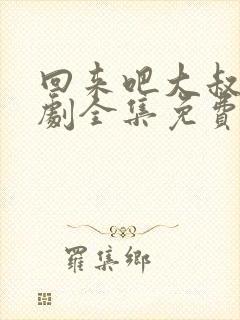 回来吧大叔
劇全集免費
羅集鄉